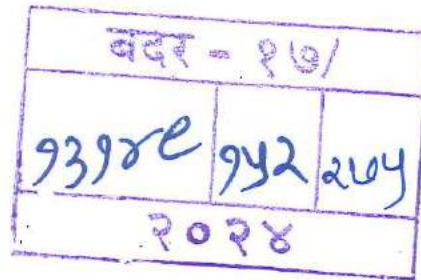 बदर - १७/
१३१४९ १५२ २७५
२०२४